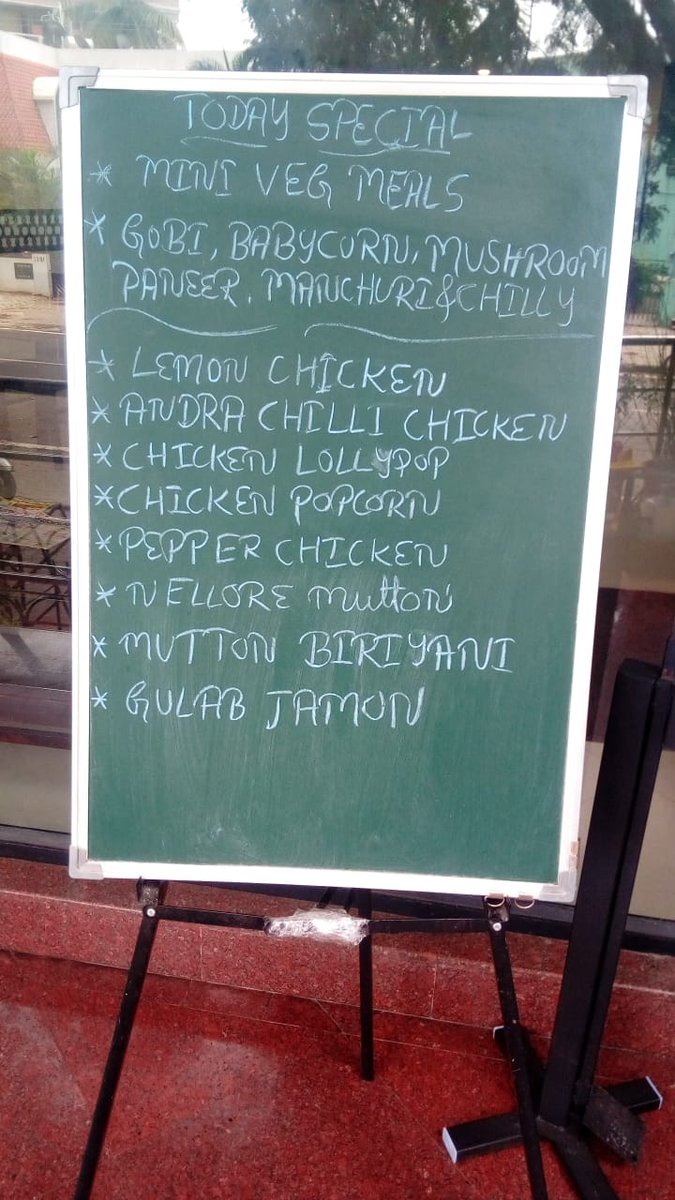 TODAY SPECIAL
* MINI VEG MEALS
* GOBI, BABYCORN, MUSHROOM
PANEER. MANCHURI & CHILLY
* LEMON CHICKEN
* ANDRA CHILLI CHICKEN
* CHICKEN LOLLYPOP
* CHICKEN POPCORN
* PEPPER CHICKEN
* NELLORE MUTTON
* MUTTON BIRIYANI
* GULAB JAMON